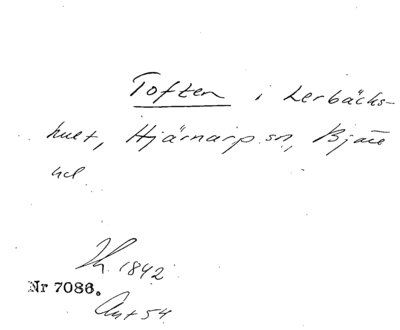 Toften i Lerbäcks-
hult, Hjärnarp sn, Bjäre
hd
Th. 1842
Nr 7086.
Ant 54